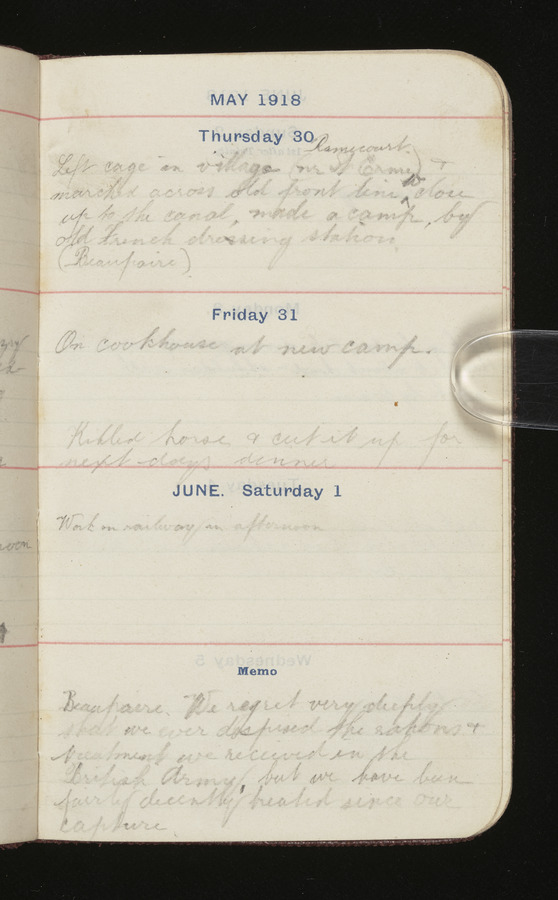 MAY 1918
Thursday 30
Ramecourt.
Left cage in village (nr St Erme) &
marched across old front line close
up to the canal, made a camp, by
old French dressing station.
(Beaufaire)
Friday 31
On cookhouse at new camp.
Killed horse & cut it up for
next days dinner
JUNE. Saturday 1
Work on railway in afternoon
Memo
Beaufaire. We regret very deeply
that we ever despised the rations &
treatment we received in the
British Army, but we have been
fairly decently treated since our
capture.